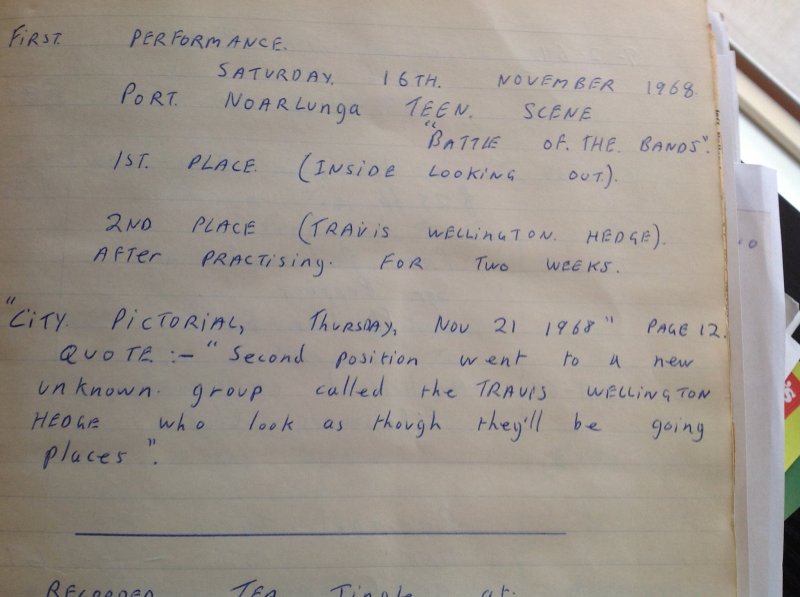 FIRST. PERFORMANCE.
SATURDAY. 16TH. NOVEMBER 1968.
PORT. NOARLUNGA TEEN. SCENE
"BATTLE OF. THE. BANDS".
1ST. PLACE. (INSIDE LOOKING OUT).
2ND PLACE (TRAVIS WELLINGTON. HEDGE).
AFTER PRACTISING. FOR TWO WEEKS.
"CITY. PICTORIAL, THURSDAY, NOV 21 1968" PAGE 12.
QUOTE :- "Second position went to a new
unknown. group called the TRAVIS WELLINGTON
HEDGE who look as though they'll be going
places".
RECORDED TEA Jingle at.